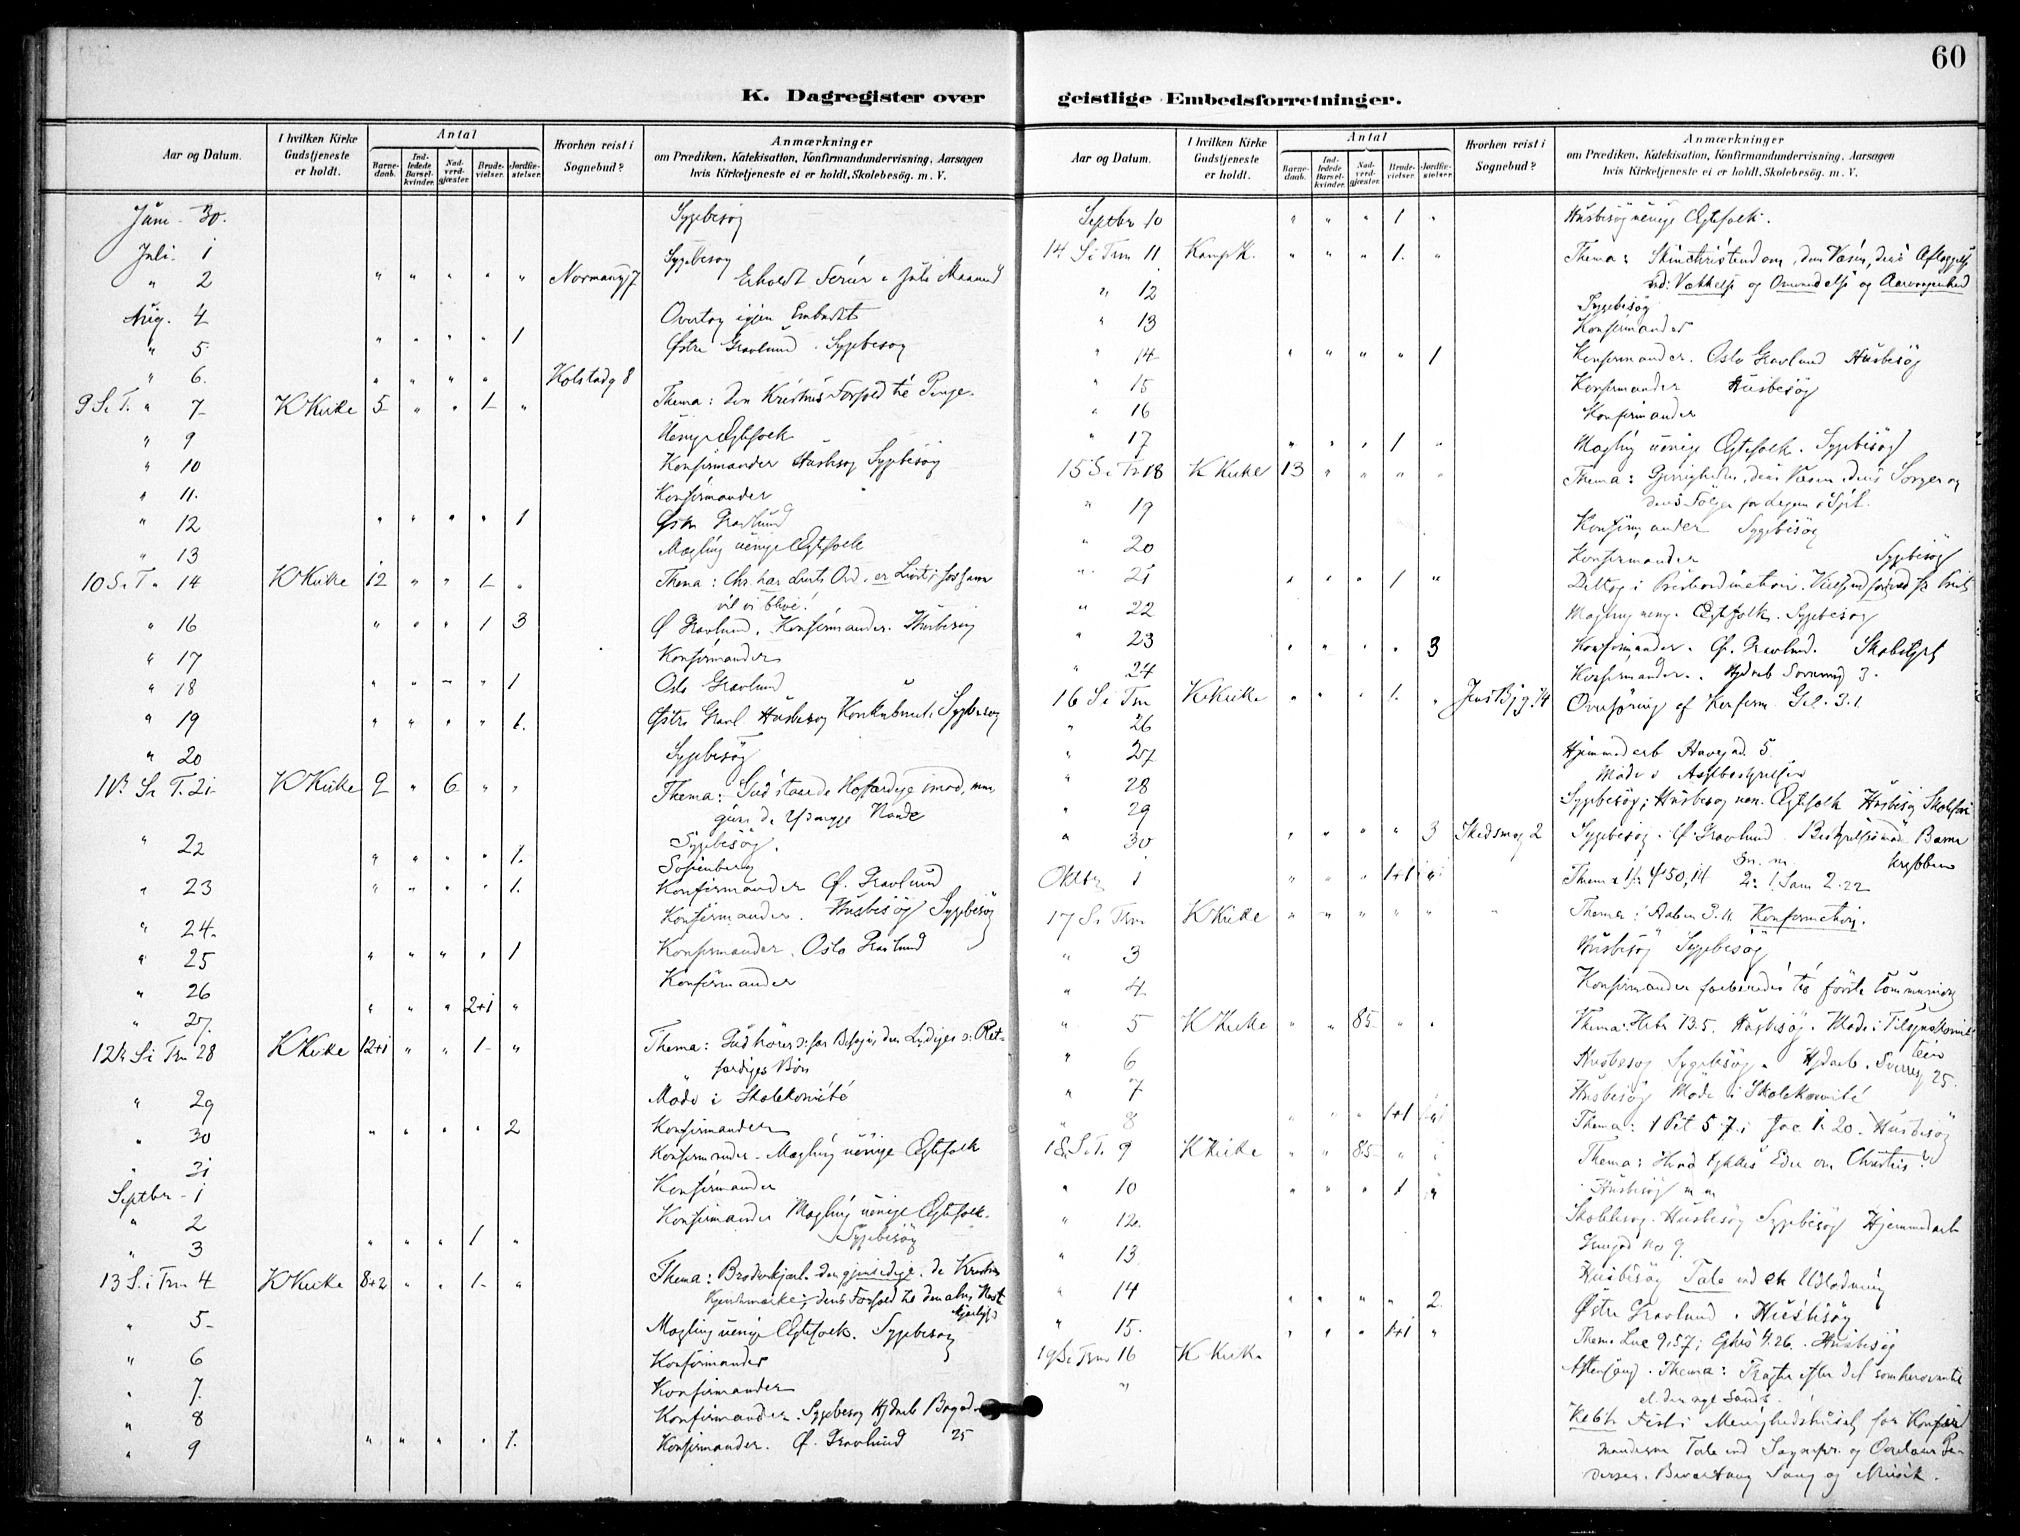 60
K. Dagregister over
geistlige Embedsforretninger.
Aar og Datum.
I hvilken Kirke
Gudstjeneste
er holdt.
Antal
Barne-
daab.
Ind-
ledede
Barsel-
kvinder.
Nad-
verd-
gjæster.
Brude-
vielser.
Jordfæ-
stelser.
Hvorhen reist i
Sognebud?
Anmærkninger
om Prædiken, Katekisation, Konfirmandundervisning, Aarsagen
hvis Kirketjeneste ei er holdt, Skolebesøg. m. V.
Juni 30. Sygebesøg
Juli 1 Sygebesøg
" 2 " " " " " Normansg 7 Erholdt Ferier i Juli Maaned
Aug. 4 Overtog igjen Embedet
" 5 " " " " 1 Østre Gravlund. Sygebesøg
" 6. " " " " Kolstadg 8
9 S. T. " 7 K Kirke 5 " " 1 " Thema: den Kristnes Forhold til Penge.
" 9 Uenige Ægtefolk
" 10 Konfirmander Husbesøg Sygebesøg
" 11. Konfirmander
" 12 " " " " 1 Østre Gravlund
" 13 Mægling uenige Ægtefolk
10 S. T. " 14 K Kirke 12 " " 1 " Thema: Chr. har Livets Ord, er Livet;
vil vi blive!
" 16 " " " 1 3 Ø Gravlund. Konfirmander. Husbesøg
" 17 Konfirmander
" 18 " " " " 1 Oslo Gravlund
" 19 " " " " 1. Østre Gravl. Husbesøg Konkubinat. Sygebesøg
" 20 Sygebesøg
11. S. T. 21 K Kirke 9 " 6 " " Thema: Gud staar de Hoffærdige imod, men
giver de Ydmyge Naade
" 22 Sygebesøg.
" " " " 1. Sofienberg
" 23 " " " " 1. Konfirmander Ø. Gravlund
" 24. Konfirmander. Husbesøg Sygebesøg
" 25 " " " " 1 Konfirmander. Oslo Gravlund
" 26 Konfirmander
" 27. " " " 2+1 "
12 S i Trin 28 K Kirke 12+1 " " 1 " Thema: Gud hører
færdiges Bøn
" 29 Møde i Skolekomité
" 30 " " " " 2 Konfirmander
" 31 Konfirmander. Mægling uenige Ægtefolk
Septbr 1 Konfirmander
" 2 Konfirmander Mægling uenige Ægtefolk.
" 3 " " " 1 " Sygebesøg
13 S. i Trin 4 K Kirke 8+2 " " 1 " Thema: Broderkjærl. den gjensidige, de Kristnes
Kjendemærke; dens Forhold til den alm. Næste
kjærlighed
" 5 Mægling uenige Ægtefolk. Sygebesøg
" 6 Konfirmander
" 7. Konfirmander
" 8 Konfirmander. Sygebesøg
25
" 9 " " " " 1. Konfirmander. Ø. Gravlund
Aar og Datum.
I hvilken Kirke
Gudstjeneste
er holdt.
Antal
Barne-
daab.
Ind-
ledede
Barsel-
kvinder.
Nad-
verd-
gjæster.
Brude-
vielser.
Jordfæ-
stelser.
Hvorhen reist i
Sognebud?
Anmærkninger
om Prædiken, Katekisation, Konfirmandundervisning, Aarsagen
hvis Kirketjeneste ei er holdt, Skolebesøg. m. V.
Septbr 10 " " " 1 " Husbesøg uenige Ægtefolk.
14 S i Trin 11 Kamp K. " " " 1. " Thema: Skinchristendom, dens Væsen, dens Aflæggelse
ved: Vækkelse og Omvendelse og Aarvaagenhed
" 12 Sygebesøg
" 13 Konfirmander
" 14 " " " " 1 Konfirmander. Oslo Gravlund Husbesøg
" 15 Konfirmander Husbesøg
" 16 Konfirmander
" 17 " " " 1 " Mægling uenige Ægtefolk. Sygebesøg
15 S i Tr 18 K Kirke 13 " " " " Thema: Gjerrigheden, dens Væsen, dens Sorger og
dens Følger
" 19 Konfirmander Sygebesøg
" 20 Konfirmander Sygebesøg
" 21 " " " 1 " Deltog i Præsteordination.
" 22 Mægling uenige Ægtefolk. Sygebesøg
" 23 " " " " 3 Konfirmander. Ø. Gravlund. Skolestyret
" 24 Konfirmander. 3.
16 S i Trin K Kirke " " " 1. " 14 Overhøring af Konfirm. Gal. 3.1
" 26
" 27 Hjemmedøb 5
" 28 Møde i Asylbestyrelsen
" 29 Sygebesøg; Husbesøg uen. Ægtefolk Husbesøg
" 30 " " " " 3 Skedsmog 2 Sygebesøg. Ø Gravlund. Bestyrelsesmøde Barne
krybben
Oktbr 1 " " " 1+1 " Thema 50, 14 2: 1. Sam 2.22
17 S. Trin K Kirke " " " " " Thema: Aaben 3.11 Konfirmation.
" 3 Husbesøg Sygebesøg
" 4 Konfirmander forberedes til første Communion
" 5 K Kirke " " 85 " " Thema: Hebr 13.5. Husbesøg. Møde i Tilsynskomi
teen
" 6 Husbesøg Sygebesøg. Hjdøb. Sverresg 25.
" 7 Husbesøg Møde i Skolekomité
" 8 " " " 1+1 " Thema: 1 Pet 5.7; Jac 1.20. Husbesøg
18 S. T. 9 K Kirke " " 85 " " Thema: Hvad tykkes Eder om Christus?
" 10 " " " 1 " Husbesøg m m
" 12. Skolebesøg. Husbesøg Sygebesøg Hjemmedøb
no 9
" 13. Husbesøg Tale ved en Udlodning
" 14 " " " " 2. Østre Gravlund. Husbesøg
" 15. " " " 1+1 " Thema Luc 9.57; Ephes 4.26. Husbesøg
19 S i Trin 16 K Kirke Aftensang. Thema:
"
Fest i Menighedshuset for Konfir
manderne Tale ved Sognepr. og
dersen. Bevertning Sang og Musik.